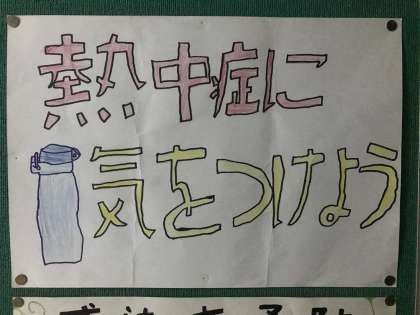 熱中症に
気をつけよう